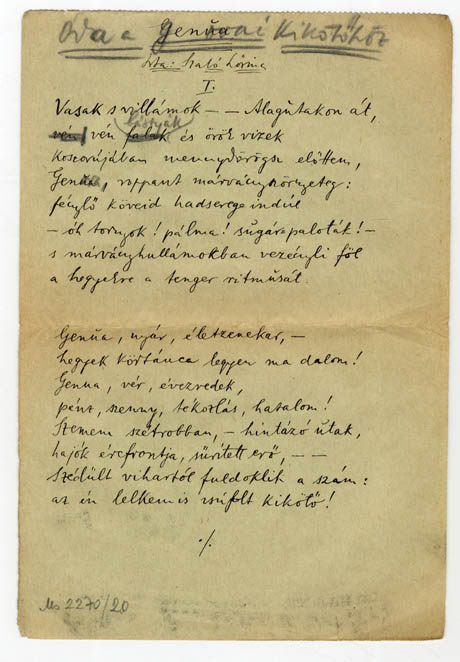 Óda a Genuai Kikötőhöz
Írta: Szabó Lőrinc
I.
Vasak s villámok – – Alagútakon át,
bástyák
vén falak és örök vizek
koszorújában mennydörögsz előttem,
Genua, roppant márványszörnyeteg:
fénylő köveid hadserege indúl
– óh tornyok! pálma! sugárpaloták! –
s márványhullámokban vezényli föl
a hegyekre a tenger ritmusát.
Genua, nyár, életzenekar, –
hegyek körtánca legyen ma dalom!
Genua, vér, évezredek,
pénz, szenny, tékozlás, hatalom!
Szemem szétrobban, – hintázó útak,
hajók ércfrontja, sűrített erő, – –
Szédült vihartól fuldoklik a szám:
az én lelkem is zsúfolt kikötő!
./.
Ms 2270/20